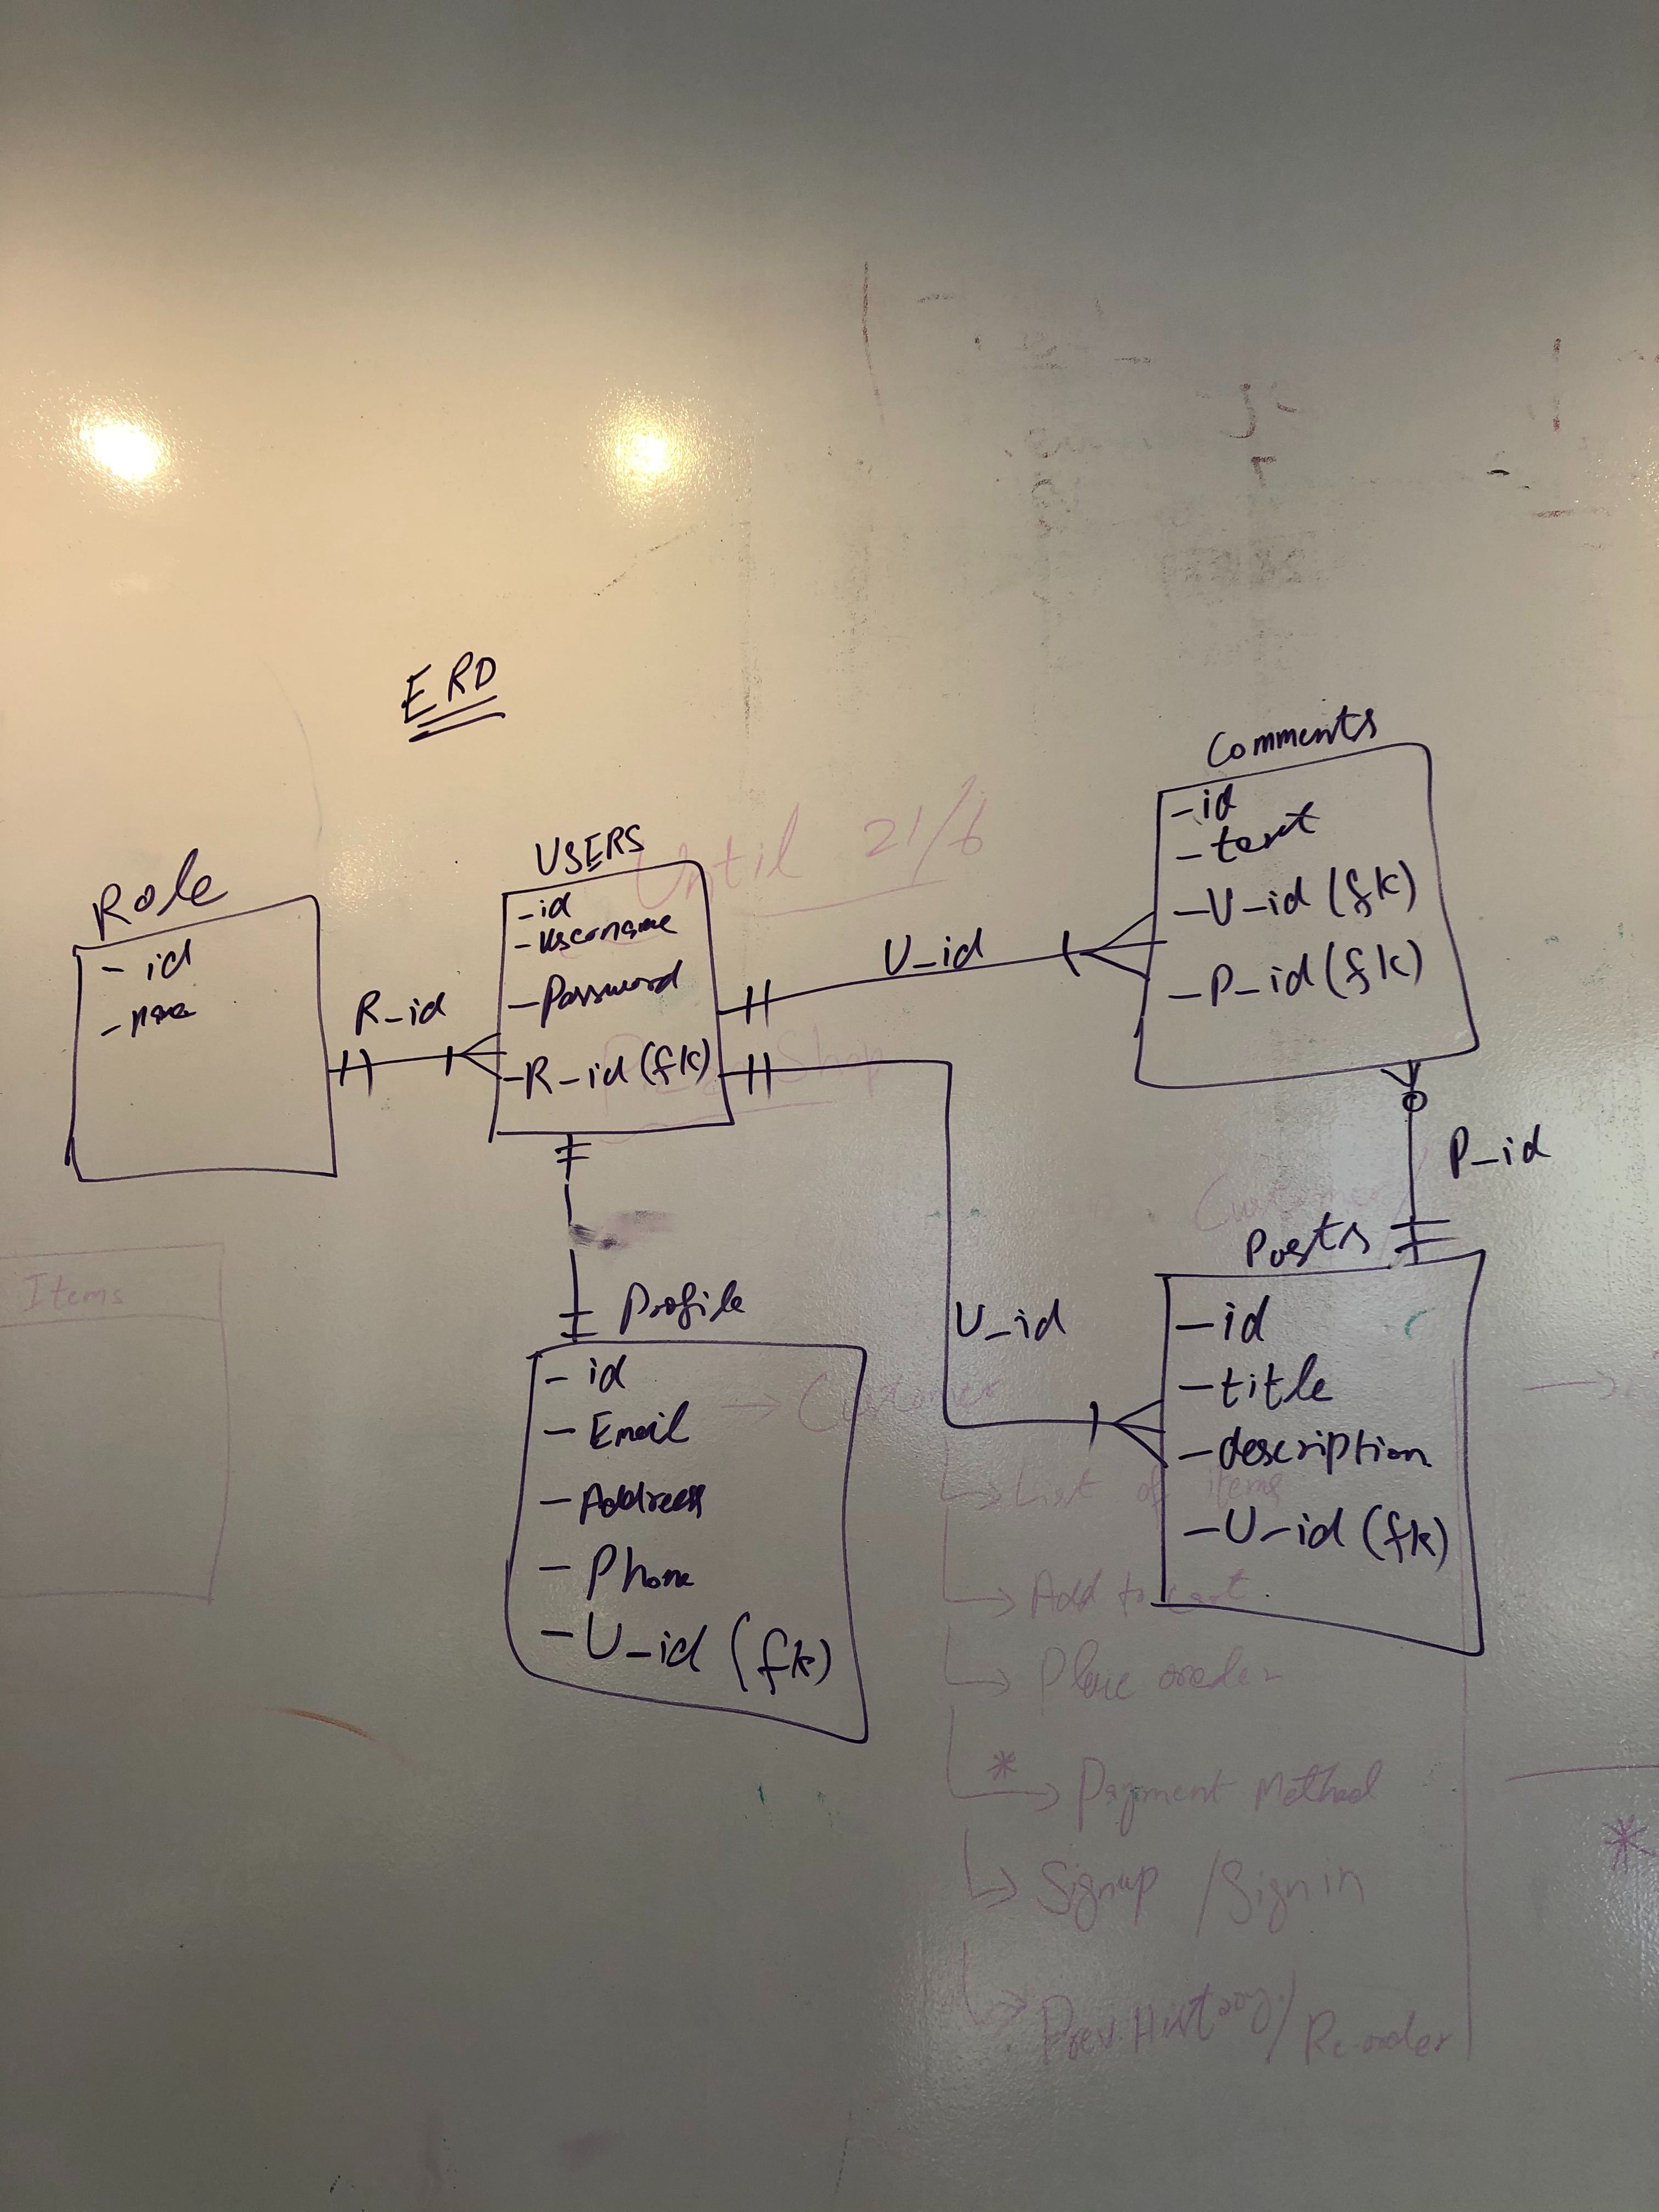 ERD
Role
- id
R_id
USERS
- id
- username
- Password
- R_id (fk)
U_id
Comments
- id
- text
- U_id (fk)
- P_id (fk)
P_id
Posts
- id
- title
- description
- U_id (fk)
U_id
Profile
- id
- Email
- Address
- Phone
- U_id (fk)
Until 21/6
Shop
Customer
Items
Customer
List of items
Add to cart
Place order
* Payment Method
Signup / Sign in
Prev. History / Re-order
*